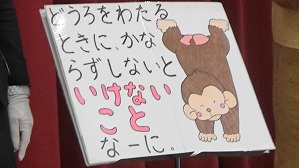 どうろをわたる
ときに、かな
らずしないと
いけない
こと
なーに。